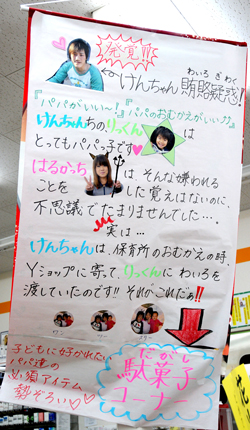 発覚!!
けんちゃん
わいろ ぎわく
賄賂疑惑!
『パパがいい~!』『パパのおむかえがいい♪』
けんちゃんちの、りっくんは
とってもパパっ子です♡
はるかっちは、そんな嫌われる
ことをした覚えはないのに、
不思議でたまりませんでした…。
実は…
けんちゃんは、保育所のおむかえの時、
Yショップに寄て りっくんに わいろを
渡していたのです!! それが これだぁ!!
ワン
ツー
子どもに好かれたい
パパ達の
必須アイテム
勢ぞろい♡♡
だがし
駄菓子
コーナー